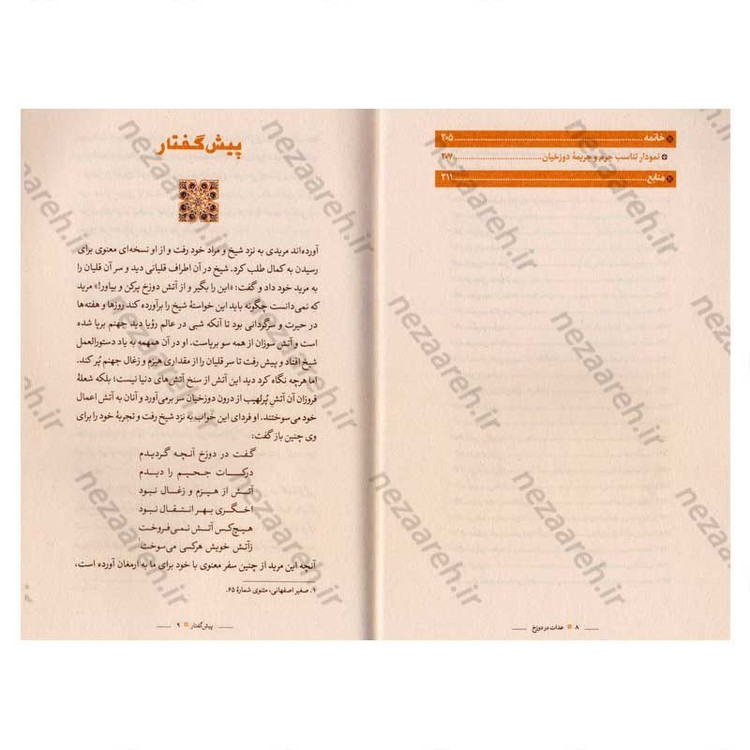 خاتمه ۲۰۵
نمودار تناسب جرم و جریمهٔ دوزخیان ۲۰۷
منابع ۲۱۱
۸ عدالت در دوزخ
پیش‌گفتار
آورده‌اند مریدی به نزد شیخ و مراد خود رفت و از او نسخه‌ای معنوی برای
رسیدن به کمال طلب کرد. شیخ در آن اطراف قلیانی دید و سر آن قلیان را
به مرید خود داد و گفت: «این را بگیر و از آتش دوزخ پرکن و بیاور!» مرید
که نمی‌دانست چگونه باید این خواستهٔ شیخ را برآورده کند روزها و هفته‌ها
در حیرت و سرگردانی بود تا آنکه شبی در عالم رؤیا دید جهنم برپا شده
است و آتش سوزان از همه سو برپاست. او در آن همهمه به یاد دستورالعمل
شیخ افتاد و پیش رفت تا سر قلیان را از مقداری هیزم و زغال جهنم پُر کند.
اما هرچه نگاه کرد دید این آتش از سنخ آتش‌های دنیا نیست؛ بلکه شعلهٔ
فروزان آن آتشِ پُرلهیب از درون دوزخیان سر برمی‌آورد و آنان به آتش اعمال
خود می‌سوختند. او فردای این خواب به نزد شیخ رفت و تجربهٔ خود را برای
وی چنین باز گفت:
گفت در دوزخ آنچه گردیدم
درکات جحیم را دیدم
آتش از هیزم و زغال نبود
اخگری بهر انتقال نبود
هیچ‌کس آتش نمی‌فروخت
زآتش خویش هرکسی می‌سوخت
آنچه این مرید از چنین سفر معنوی با خود برای ما به ارمغان آورده است،
۱. صغیر اصفهانی، مثنوی شمارهٔ ۶۵.
پیش‌گفتار ۹
nezaareh.ir
nezaareh.ir
nezaareh.ir
nezaareh.ir
nezaareh.ir
nezaareh.ir
nezaareh.ir
nezaareh.ir